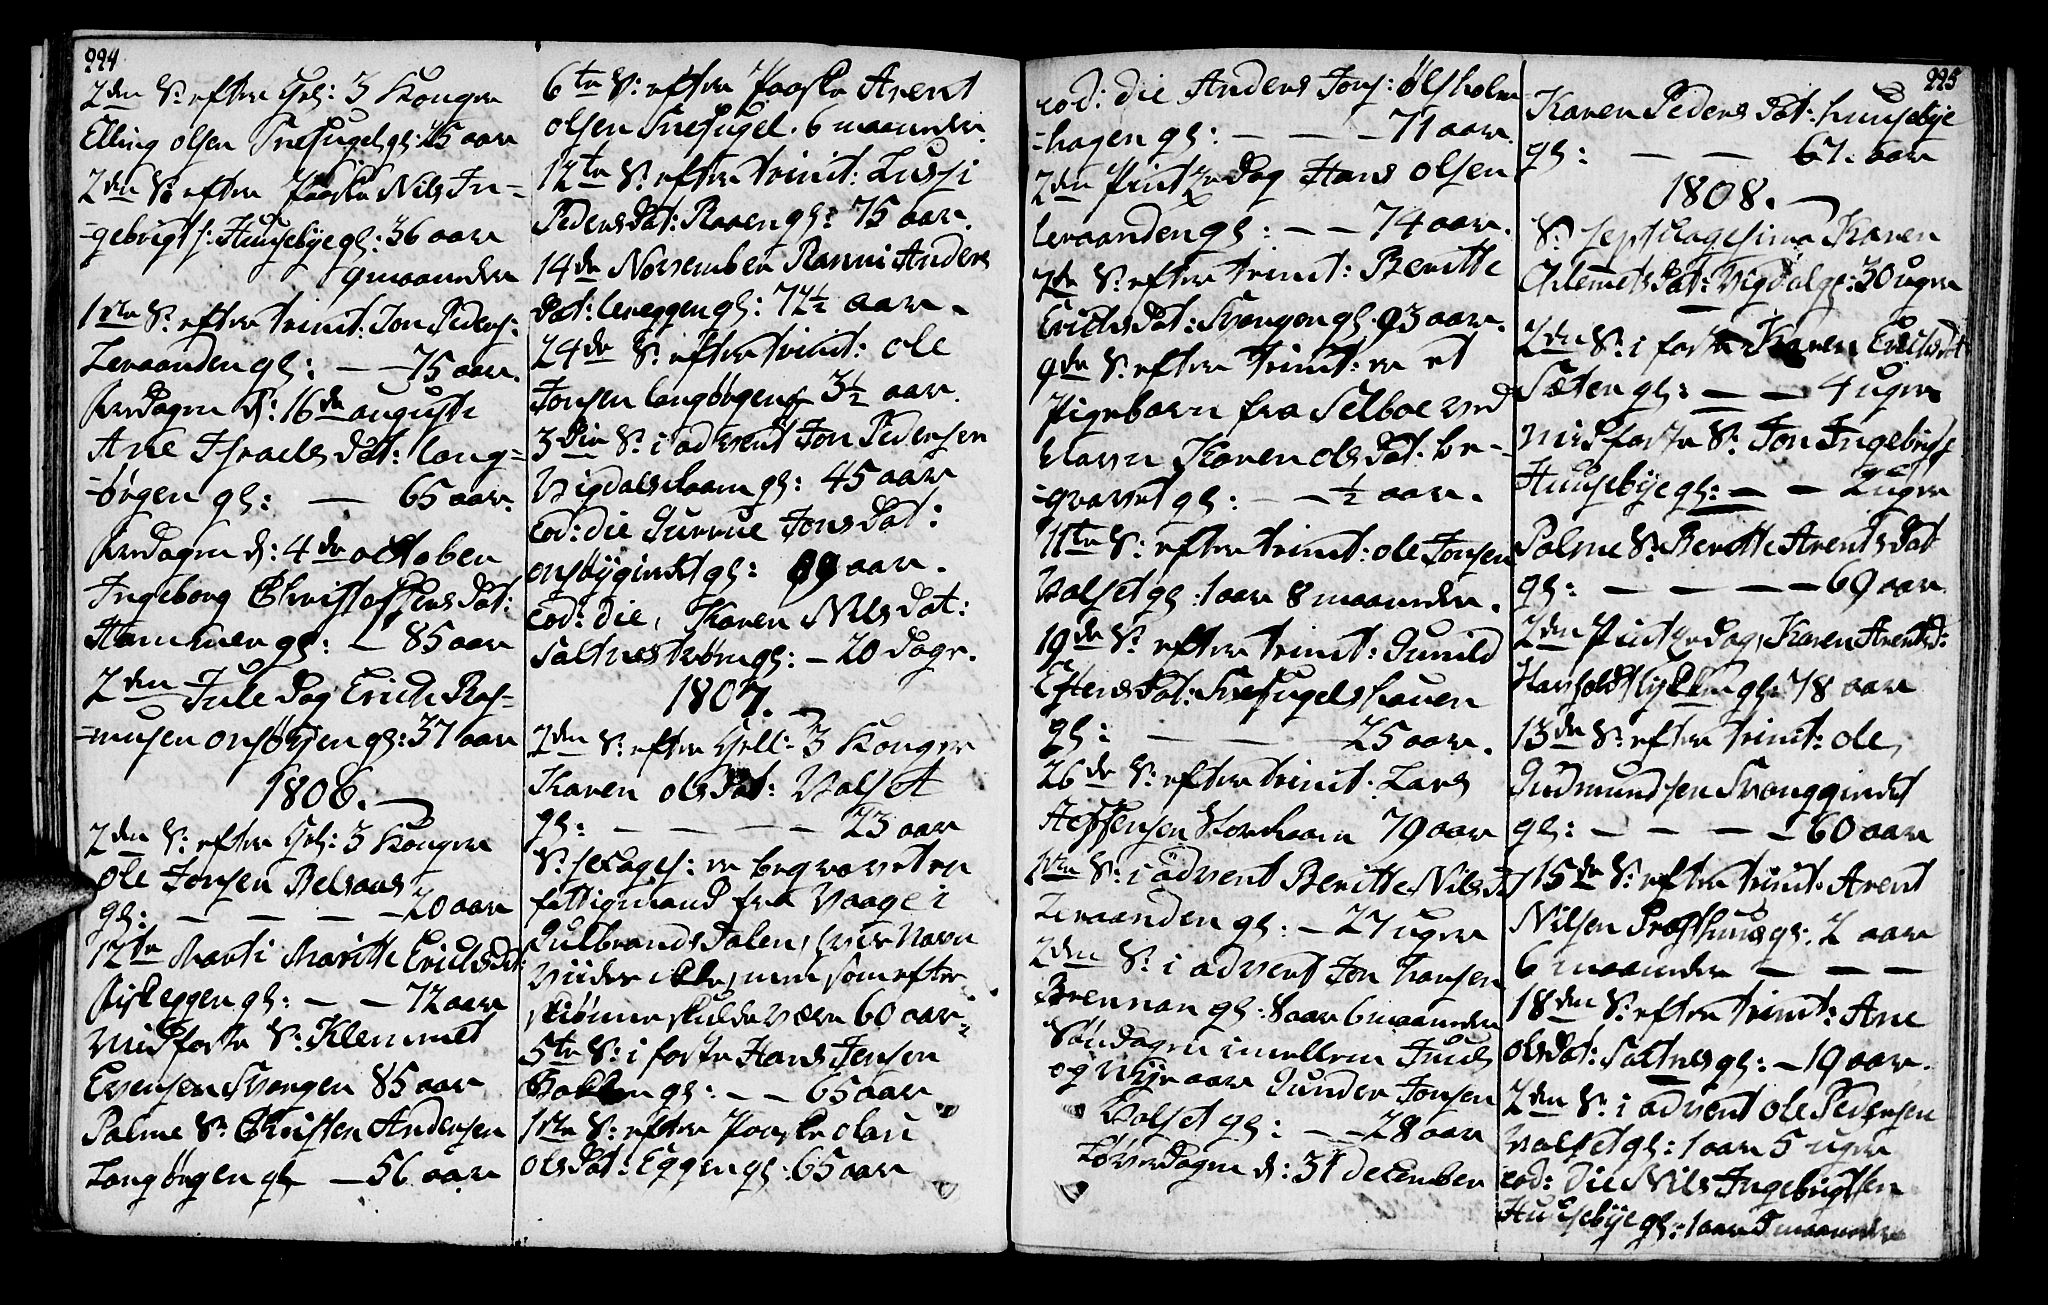 224
2den S: efter Hel: 3 Konger
Elling Olsen Snefugel gl: 25 aar
2den S: efter Paaske Nils In-
-gebrigts: Huusebye gl: 36 aar
9 maaneder
1ste S: efter trinit: Jon Peders:
Leraanden gl: — — 75 aar.
fredagen d: 16de augusti
Ane Israels dat: lang-
-ørgen gl: — 65 aar.
fredagen d: 4de october
Ingeborg Christophers dat:
Hammer gl: — 85 aar
2den Jule dag Erich Ras-
-musen onsøyen gl: 37 aar
1806.
2den S: efter Hel: 3 Konger
Ole Jonsen Relsaas
gl: — — — — 20 aar
12te Marti Maritte Erichsdt:
eggen gl: — — 72 aar
Midfaste S: Klemmet
Evensen Svangen 85 aar
Palme S: Christen Andersen
Langørgen gl — 56 aar
6te S: efter Paaske Arent
Olsen Snefugel. 6 maaneder.
12te S: efter trinit: Lussi
Pedersdat: Raaen gl: 75 aar.
14de November Ranni Anders
dat: Lereggen gl: 72½ aar.
24de S: efter trinit: Ole
Jonsen langørgen gl 3½ aar.
3die S: i advent Jon Pedersen
Vigdalshaam gl: 45 aar
eod: die Gurrue Jons dat:
onsøygindt gl: 89 aar.
eod: die, Karen Nils dat:
Saltnes gl: — 20 dage.
1807.
2den S: efter Hell: 3 Konger
Karen Olsdat: Valset
gl: — — — — 23 aar
S: sexages: er begravet en
fattigmand fra Vaage i
Gulbrandsdalen, hvis Navn
viides ikke, men som efter
skiønne skulde være 60 aar.
5te S: i faste Hans Jensen
Bakken gl: — — 65 aar
1ste S: efter Paaske olau
Olsdat: Eggen gl: 65 aar
eod: die Anders Jons: Ølsholm
-hagen gl: — — — 71 aar.
2den Pintzedag Hans Olsen
Leraanden gl: — — 74 aar.
2den S: efter trinit: Beritte
Erichsdat: Svangen gl. 93 aar.
9de S: efter trinit: er et
Pigebarn fra Selboe ved
Navn Karen Olsdat. be-
-gravet gl: — — ½ aar.
11te S: efter trinit: Ole Jonsen
Valset gl: 1 aar 8 maaneder.
19de S: efter trinit: Gunild
Estens dat: Snefugelshauen
gl: — — — 25 aar.
26de S: efter trinit: Lars
Steffensen 79 aar
1ste S: i advent Beritte Nilsd
Leraanden gl: — 27 uger
2den S: i advent Jon Hansen
Brennan gl: 8 aar 6 maaneder
Søndagen imellem Juul
og Nyeaar Gunder Jonsen
Valset gl: — — 28 aar
Løverdagen d: 31 december
225
Karen Peders dat: Huusebye
gl: — — 67. aar
1808.
S: septuagesima Karen
Clemets dat: Vigdal gl: 30 uger
2den S: i faste Karen Erichsdt
Sæten gl: — — 4 uger
Midfaste S: Jon Ingebrigts
Huusebye gl: — — 2 uger
Palme S: Beritte Arents dat
gl: — — — — 69 aar
2den Pintzedag Karen Arentsd:
gl: 78 aar
13de S: efter trinit: Ole
Gudmundsen Svanggindt
gl: — — — — 60 aar
15de S: efter trinit: Arent
Nilsen Præsthuus gl: 2 aar
6 maaneder — — —
18den S: efter trinit: Ane
Olsdat: Saltnes gl: — 19 aar.
2den S: i advent Ole Pedersen
Valset gl: 1 aar 5 uger
eod: die Nils Ingebrigtsen
Huusebye gl: 1 aar maaneder